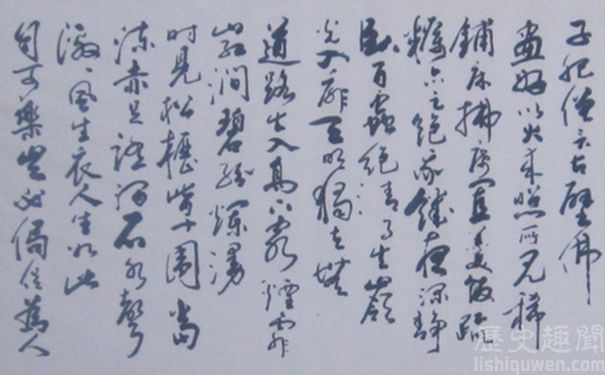 子肥僧言古壁佛
畫好以火來照所見稀
鋪床拂席置羹飯疏
糲亦足飽我饑夜深靜
臥百蟲絕清月出嶺
光入扉天明獨去無
道路出入高下窮煙霏
山紅澗碧紛爛漫
時見松櫪皆十圍當
流赤足踏澗石水聲
激々風生衣人生如此
自可樂豈必局促為人
歷史趣聞
lishiquwen.com